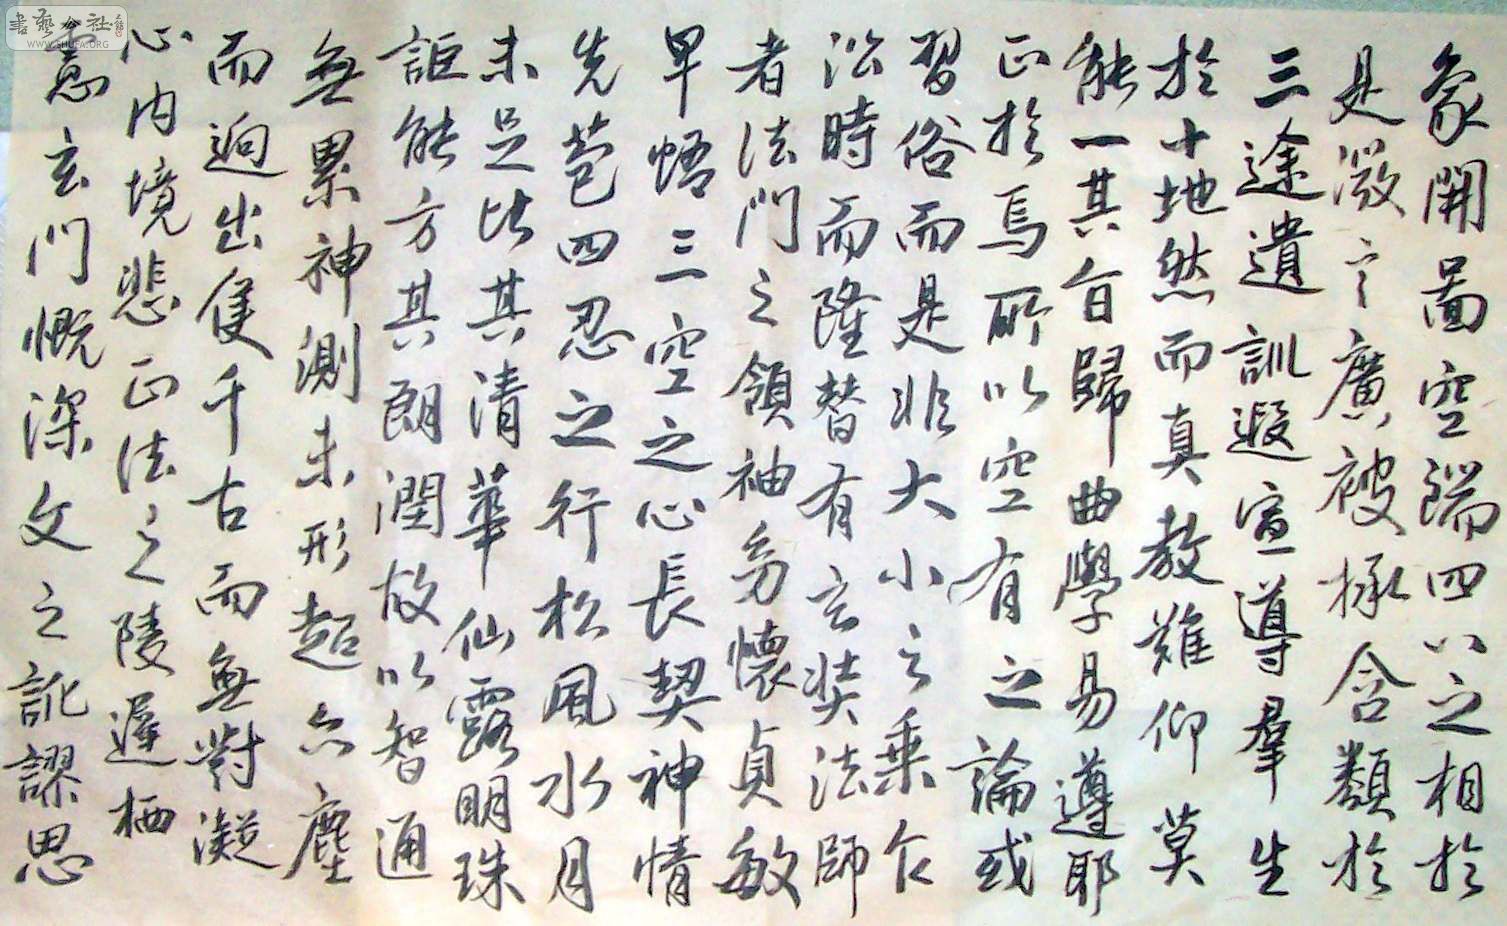 象開圖空端四八之相於
是微言廣被拯含類於
三途遺訓遐宣導羣生
於十地然而真教難仰莫
能一其旨歸曲學易遵耶
正於焉所以空有之論或
習俗而是非大小之乘乍
沿時而隆替有玄奘法師
者法門之領袖幼懷貞敏
早悟三空之心長契神情
先苞四忍之行松風水月
未足比其清華仙露明珠
詎能方其朗潤故以智通
無累神測未形超六塵
而迥出隻千古而無對凝
心內境悲正法之陵遲栖
慮玄門慨深文之訛謬思
書藝公社
WWW.SHUFA.ORG